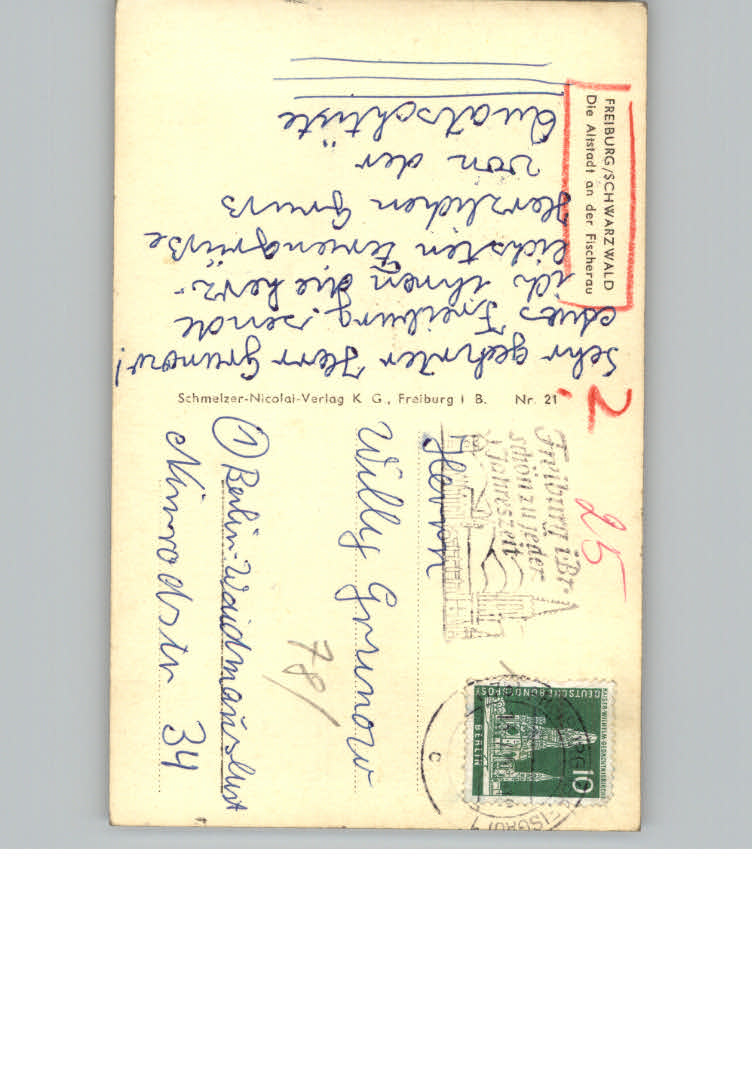 FREIBURG/SCHWARZWALD
Die Altstadt an der Fischerau
Sehr geehrter Herr Grunow!
Aus Freiburg sende
ich ihnen die herz-
lichsten Feriengrüße
Herzlichen Gruß
von der
Quatschtüte
Schmelzer-Nicolai-Verlag K. G., Freiburg i B. Nr. 21
2.
25
Freiburg i. Br.
schön zu jeder
Jahreszeit
Herrn
Willy Grunow
78/
① Berlin-Waidmannslust
Nimrodstr 34
KAISER-WILHELM-GEDÄCHTNISKIRCHE
DEUTSCHE BUNDESPOST
BERLIN
10
c